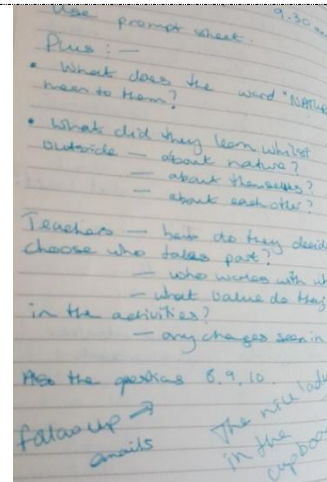 Use prompt sheet. 9.30
Plus :—
• What does the word "NATU
mean to them?
• What did they learn whilst
outside — about nature?
— about themselves?
— about each other?
Teachers — how do they decid
choose who takes part?
— who works with wh
— what value do they
in the activities?
— any changes seen in
Also the questions 8, 9, 10.
follow up →
emails
The nice lady
in the
cupboar